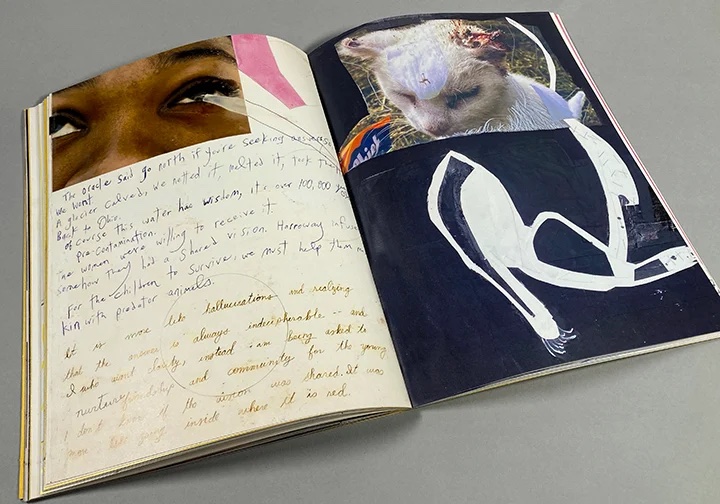 The oracle said go north if you're seeking answers
We went
A glacier calved, we netted it, melted it, took
Back to Ohio.
Of course this water has wisdom, it's over 100,000
Pre-Contamination.
The women were willing to receive it.
Somehow they had a shared vision. Harroway
For the children to survive, we must help them
kin with predator animals.
It is more like hallucinations and realizing
that the answer is always indecipherable -- and
I who want clarity, instead am being asked to
nurture friendship and community for the young
I don't know if the vision was shared. It was
more like going inside where it is red.